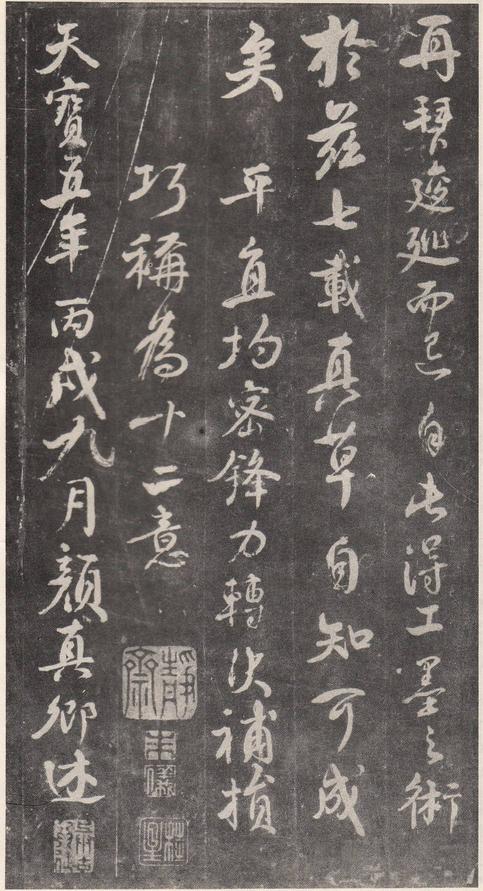 再拜逡巡而已自此得工墨之術
於茲七載真草自知可成
矣　平直均密鋒力轉決補損
巧稱為十二意
天寶五年丙戌九月顏真卿述
靜齋